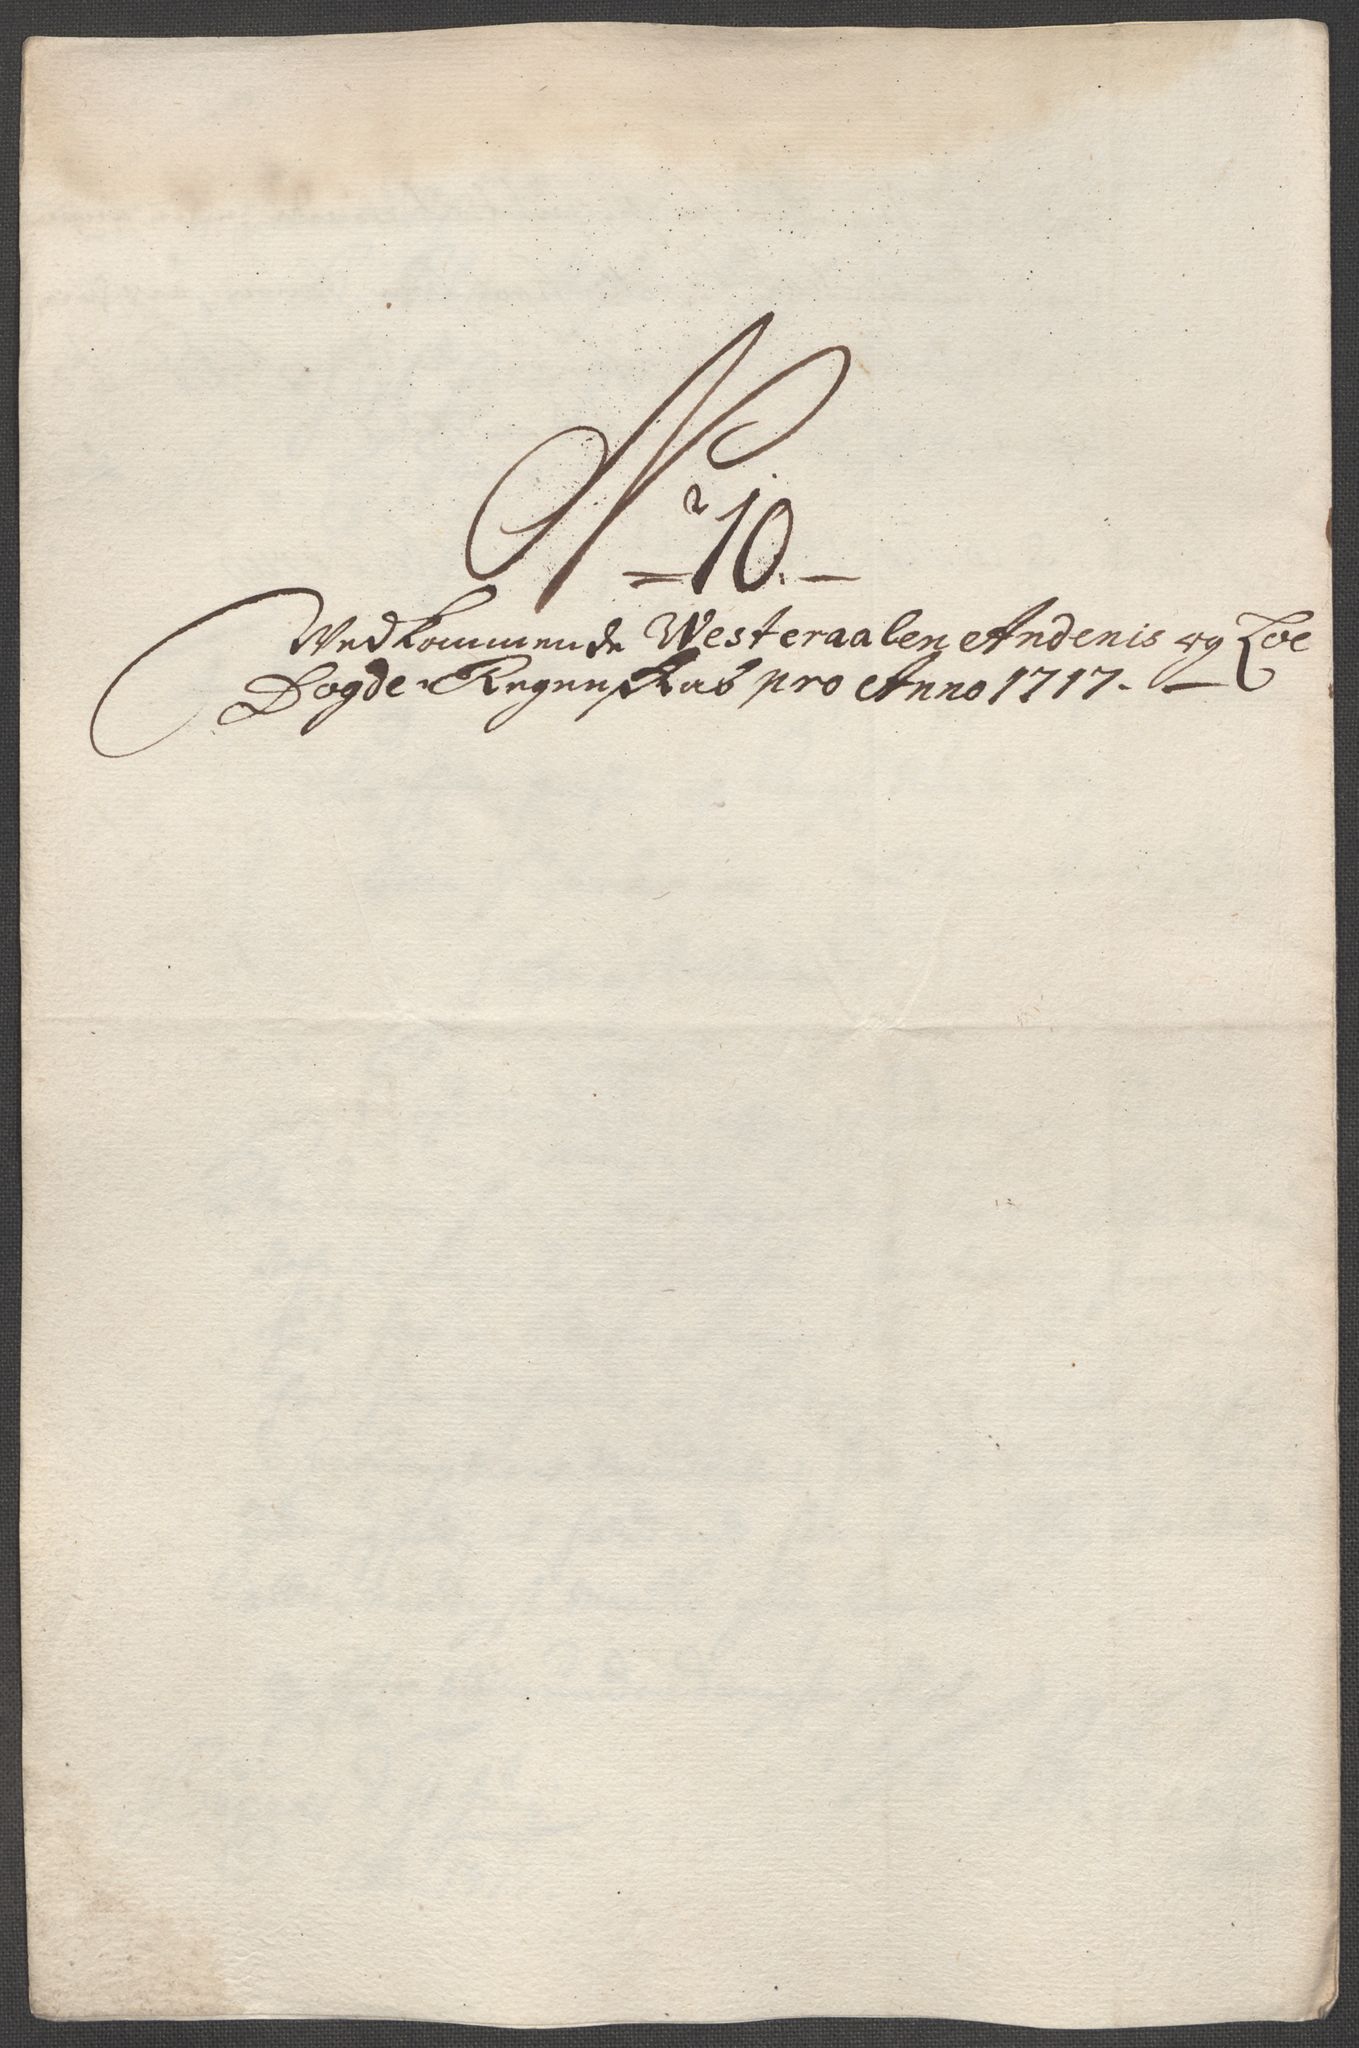 No 10.
Vedkommende Westeraalen Andenis og Loe
Fogderie Regenskab pro Anno 1717.